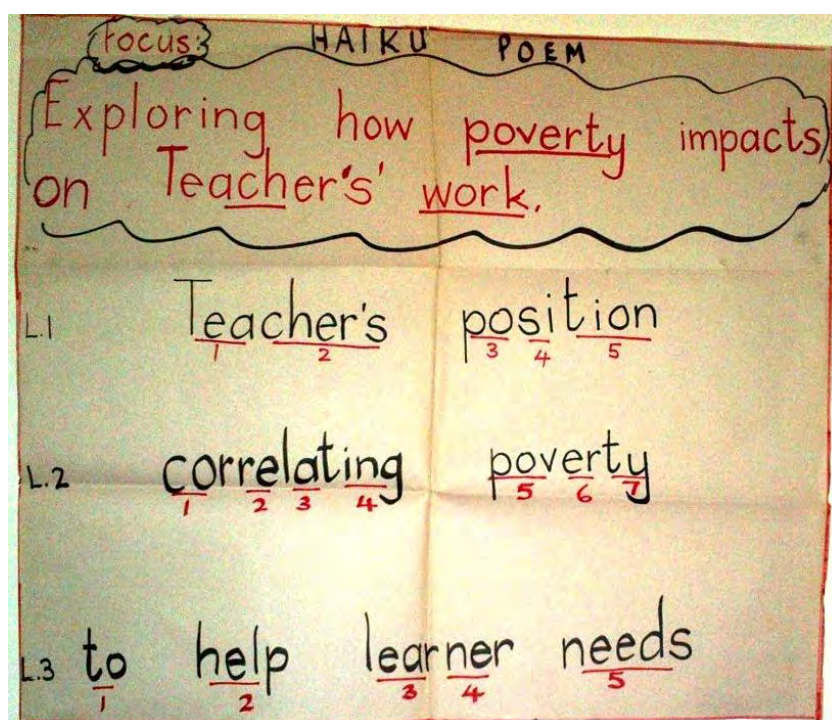 focus: HAIKU POEM
Exploring how poverty impacts
on Teacher's' work.
L.1 Teacher's position
1 2 3 4 5
L.2 correlating poverty
1 2 3 4 5 6 7
L.3 to help learner needs
1 2 3 4 5